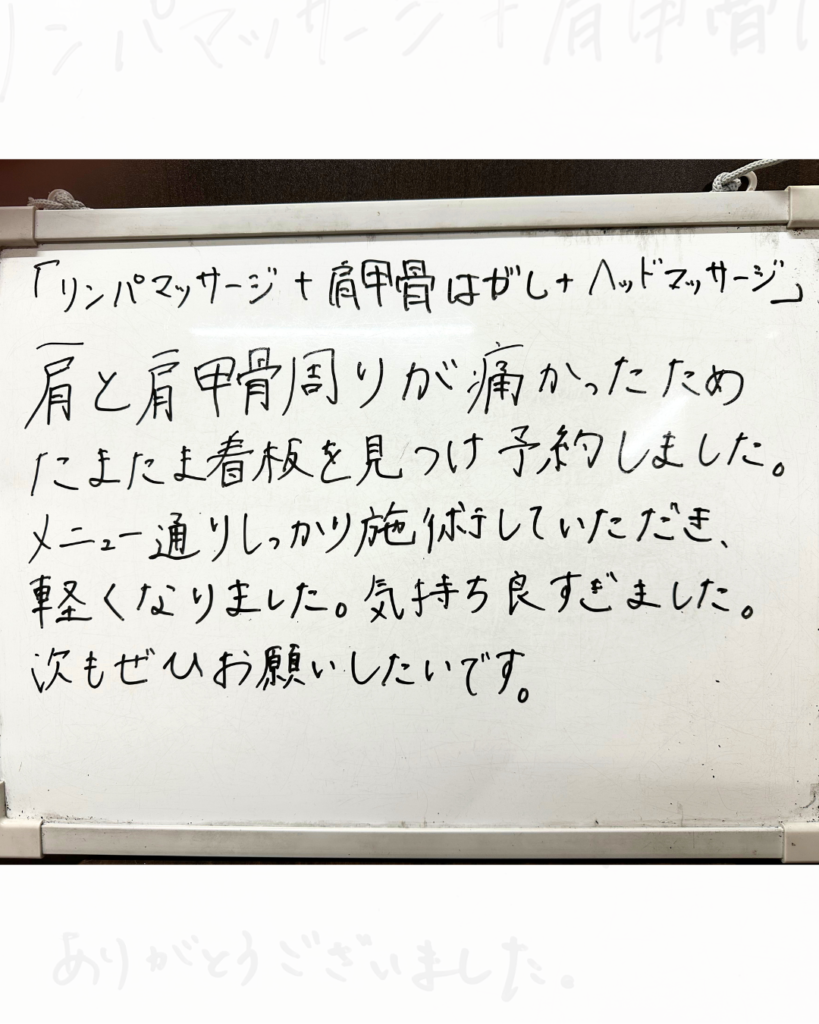 リンパマッサージ+肩甲骨は
「リンパマッサージ+肩甲骨はがし+ヘッドマッサージ」
肩と肩甲骨周りが痛かったため
たまたま看板を見つけ予約しました。
メニュー通りしっかり施術していただき、
軽くなりました。気持ち良すぎました。
次もぜひお願いしたいです。
ありがとうございました。